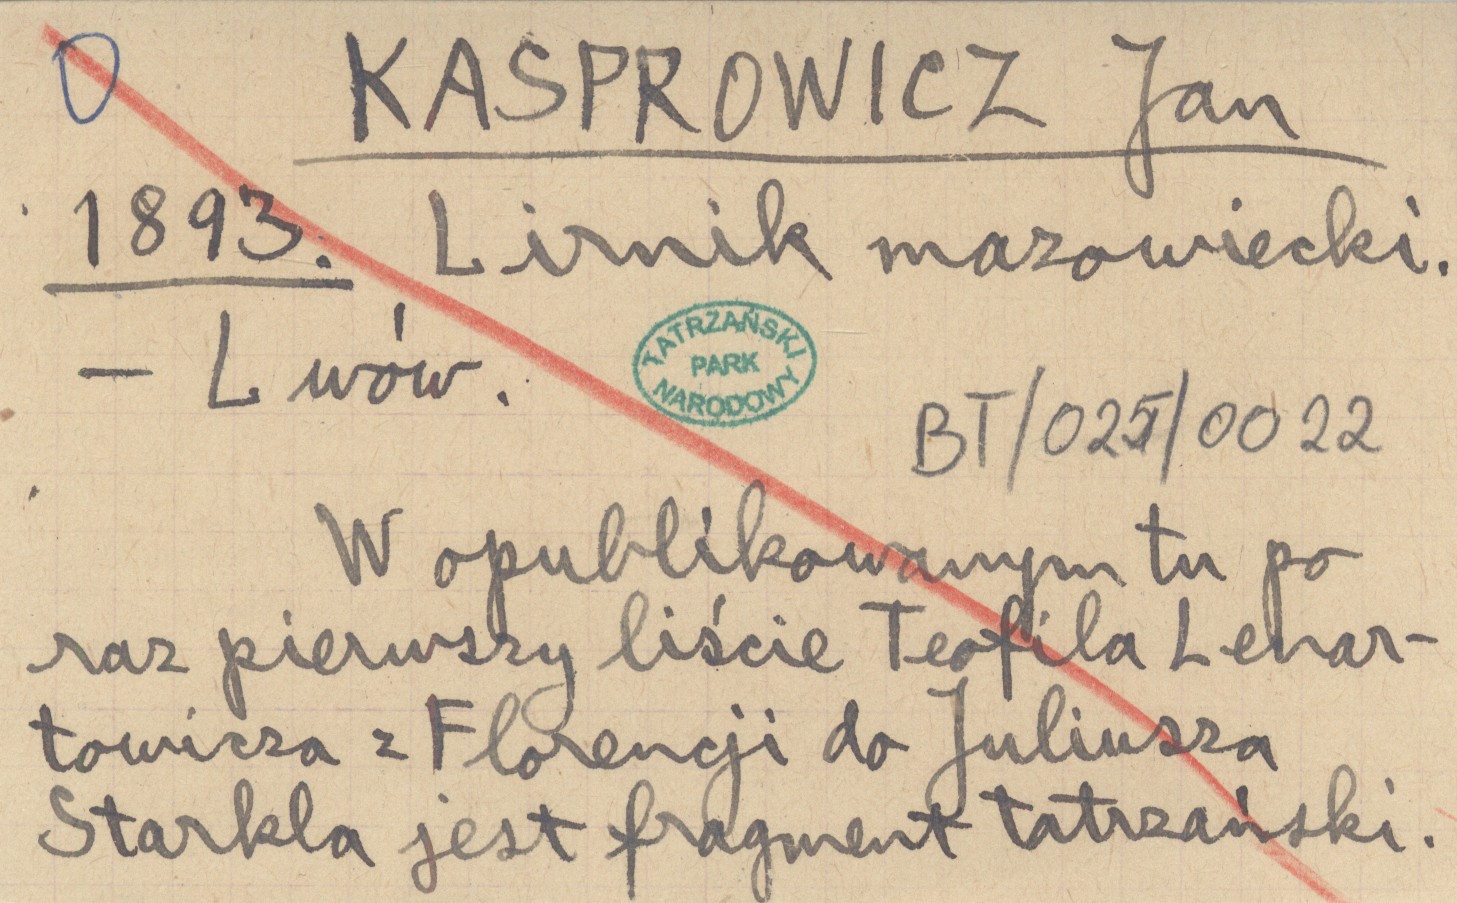 0
KASPROWICZ Jan
1893. Lirnik mazowiecki.
– Lwów.
TATRZAŃSKI
PARK
NARODOWY
BT/025/0022
W opublikowanym tu po
raz pierwszy liście Teofila Lenar-
towicza z Florencji do Juliusza
Starkla jest fragment tatrzański.